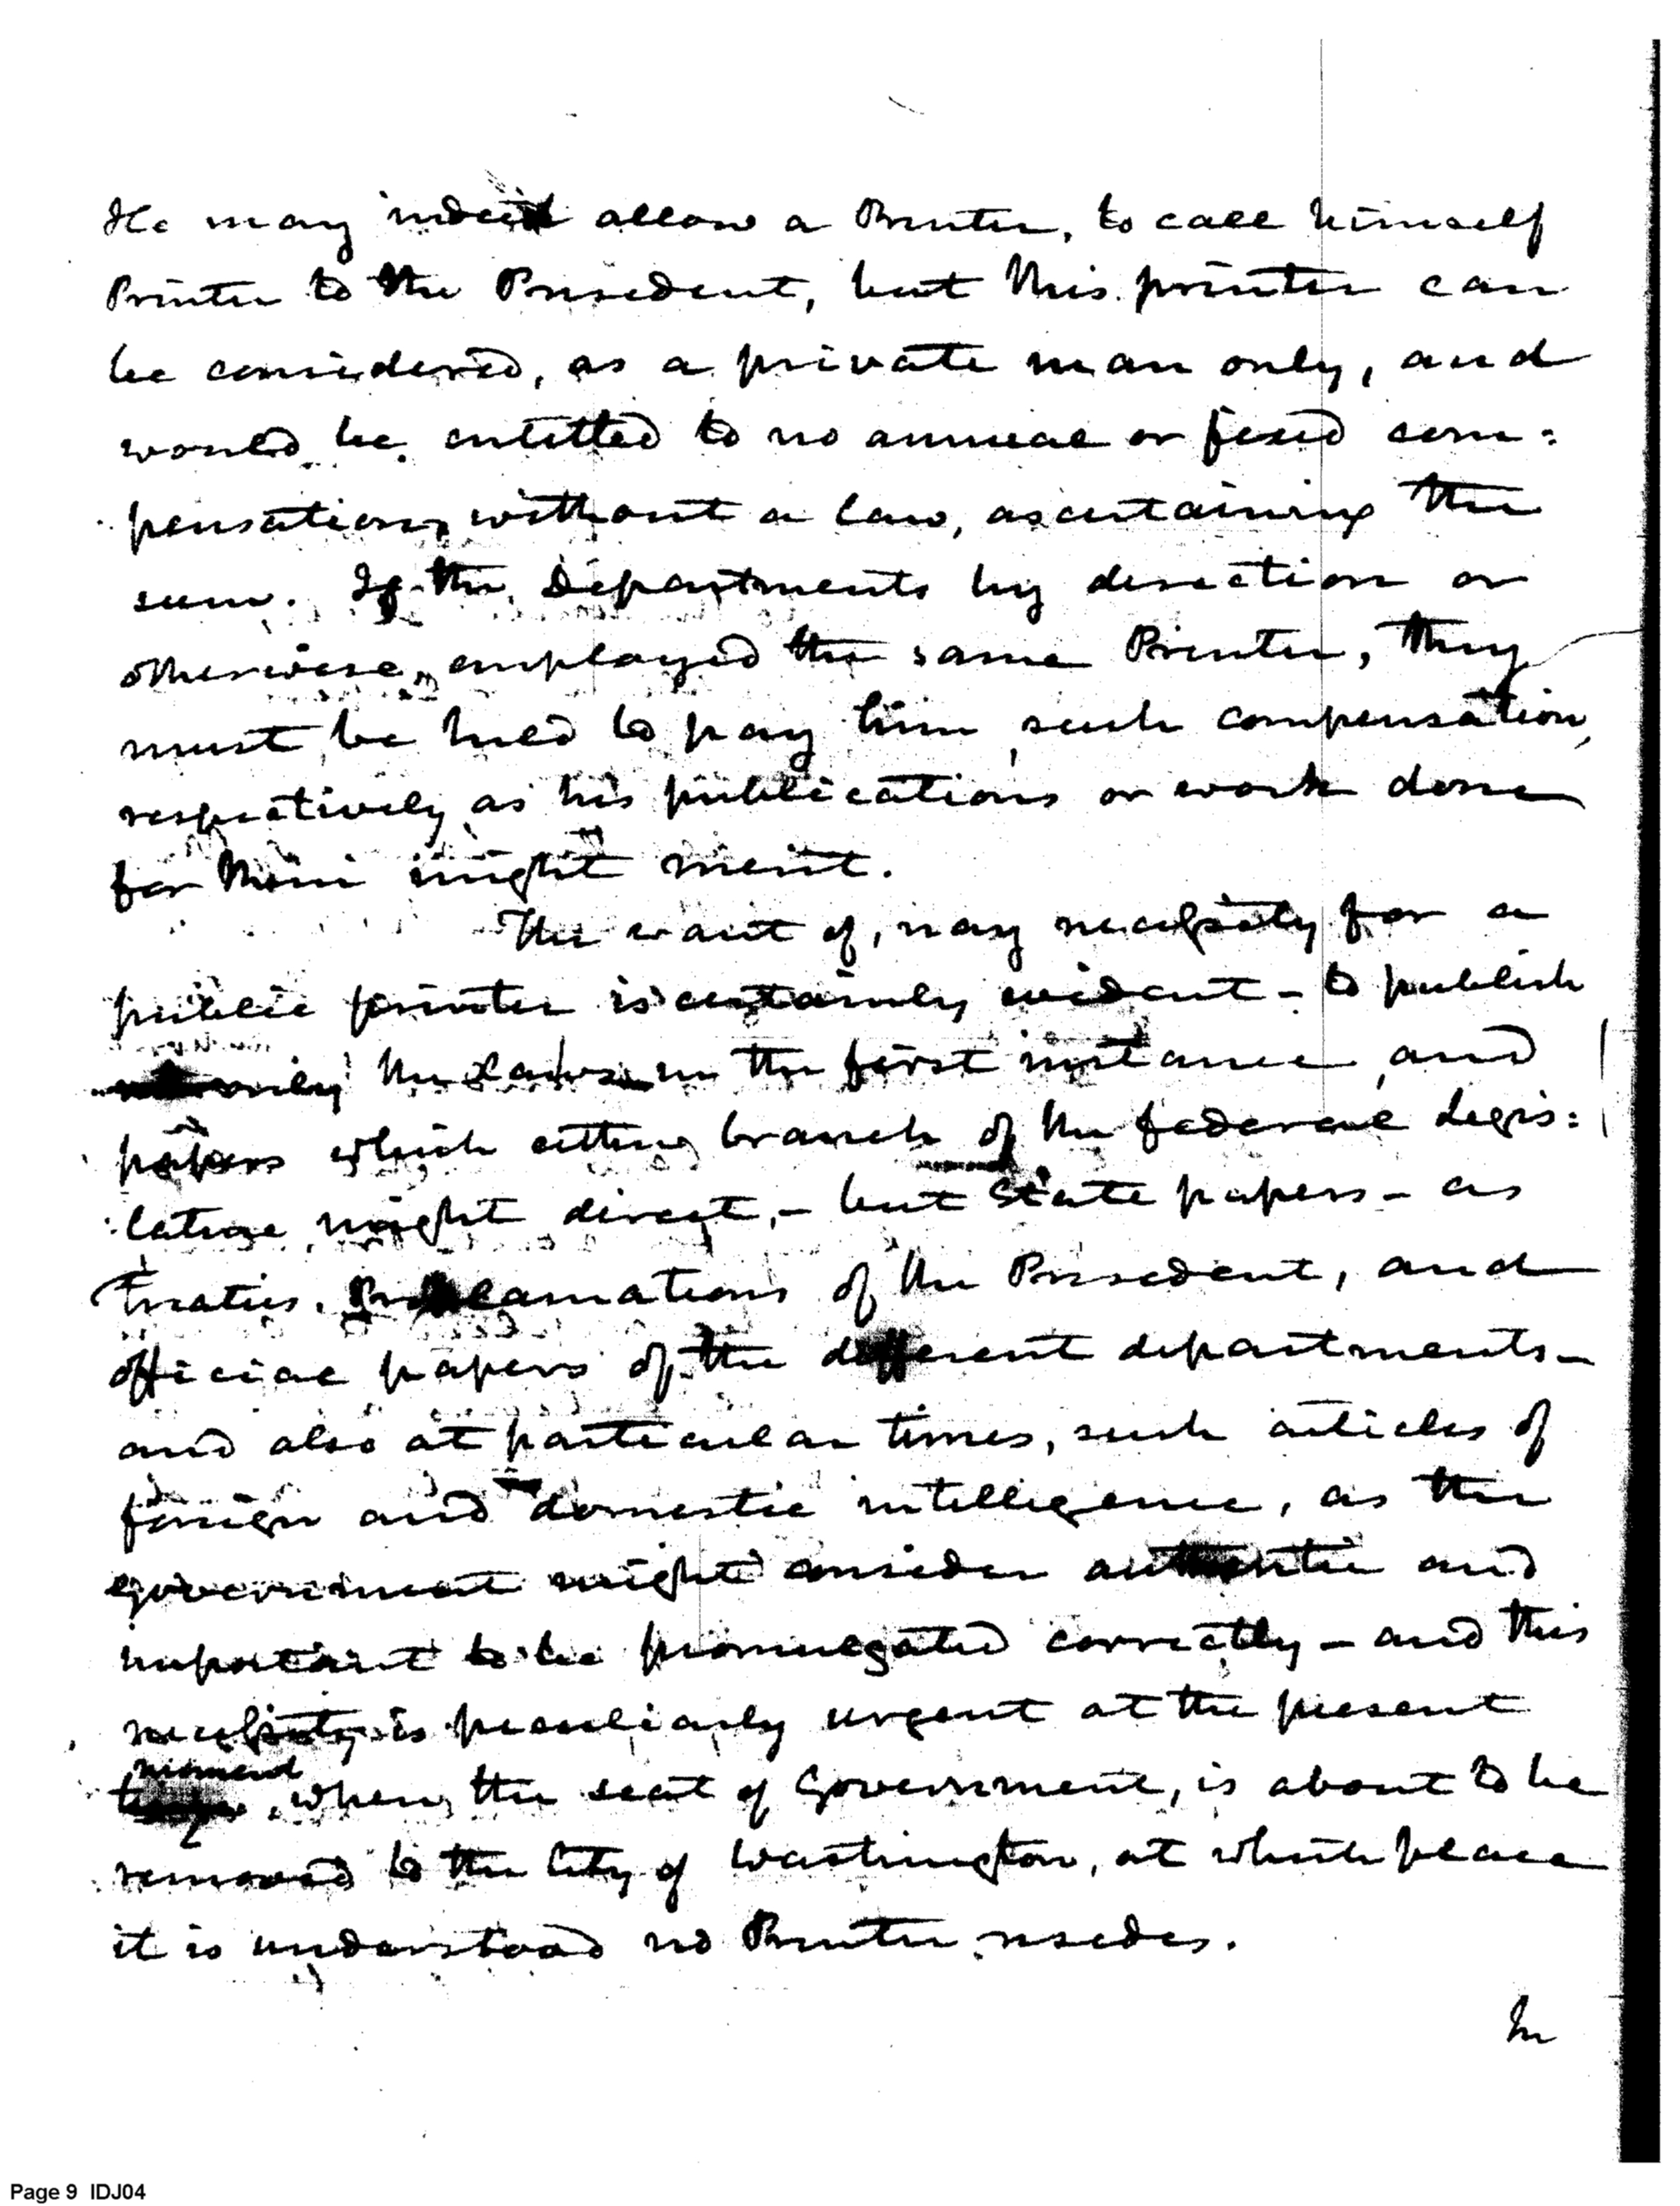 He may indeed allow a Printer, to call himself
Printer to the President, but this printer can
be considered, as a private man only, and
would be entitled to no annual or fixed com:
pensation, without a law, ascertaining the
sum. If the Departments by direction or
otherwise, employed the same Printer, they
must be held to pay him such compensation,
respectively as his publications or work done
for them might merit.
The want of, nay necessity for a
public printer is certainly evident - to publish
only the Laws in the first instance, and
papers which either branch of the federal Legis:
:lature might direct, - but State papers - as
Treaties. Proclamations of the President, and
official papers of the different departments -
and also at particular times, such articles of
foreign and domestic intelligence, as the
government might consider authentic and
important to be promulgated correctly - and this
necessity is peculiarly urgent at the present
moment, when the seat of Government, is about to be
removed to the City of Washington, at which place
it is understood no Printer resides.
In
Page 9 IDJ04